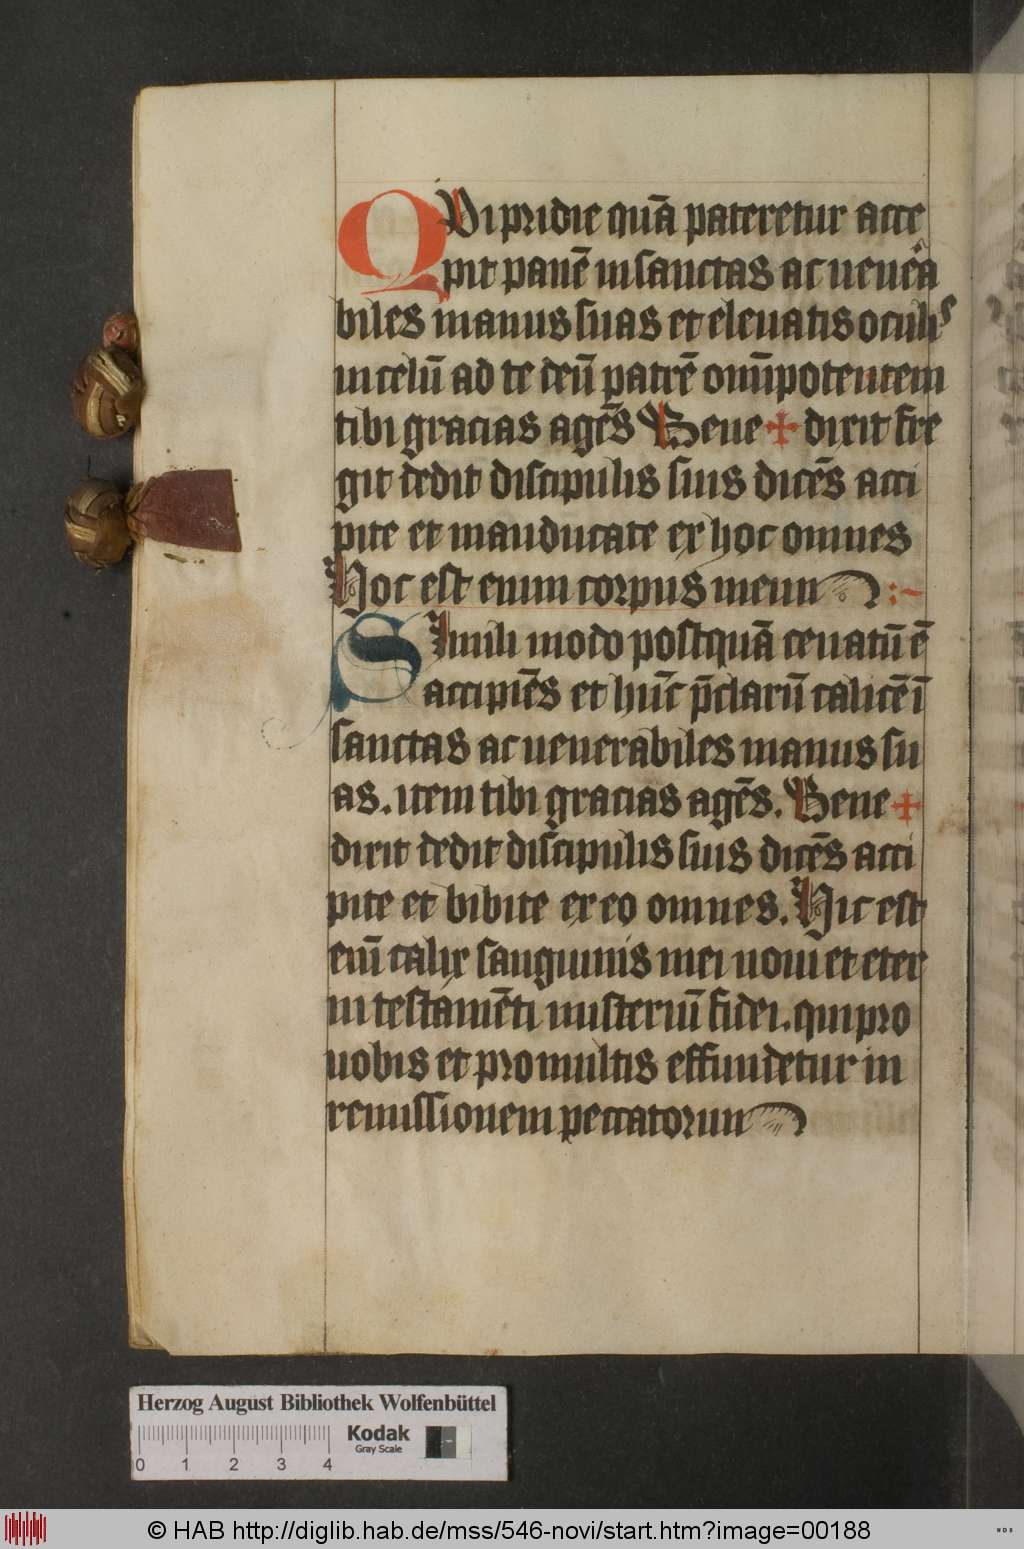 QVi pridie quā pateretur acce
pit panē in sanctas ac uene͛a
biles manus suas et eleuatis oculis
in celū ad te deū patrē om̄ipotentem
tibi gracias agēs Bene ✠ dixit fre
git dedit discipulis suis dicēs acci
pite et manducate ex hoc omnes
Hoc est enim corpus meum :~
Simili modo postquā cenatū ē
accipiēs et hūc p̄clarū calicē ī
sanctas ac uenerabiles manus su
as. item tibi gracias agēs. Bene ✠
dixit dedit discipulis suis dicēs acci
pite et bibite ex eo omnes. Hic est
enī calix sanguinis mei noui et eter
ni testamēti misteriū fidei. qui pro
uobis et pro multis effundetur in
remissionem peccatorum
Herzog August Bibliothek Wolfenbüttel
Kodak
Gray Scale
0 1 2 3 4
© HAB http://diglib.hab.de/mss/546-novi/start.htm?image=00188